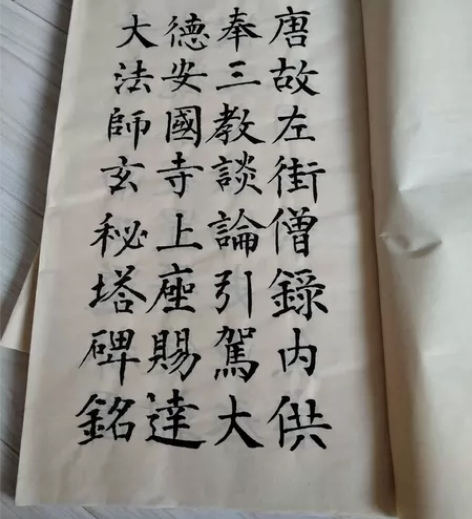 唐故左街僧錄内供
奉三教談論引駕大
德安國寺上座賜達
大法師玄秘塔碑銘